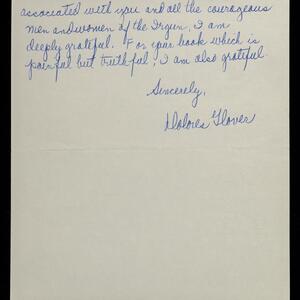 associated with you and all the courageous
men and women of the Irgun, I am
deeply grateful. For your book which is
painful but truthful, I am also grateful.
Sincerely,
Dolores Glover